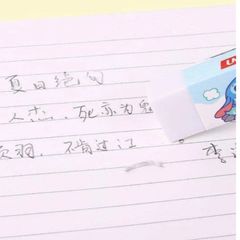 夏日绝句
人杰，死亦为鬼
项羽，不肯过江
李